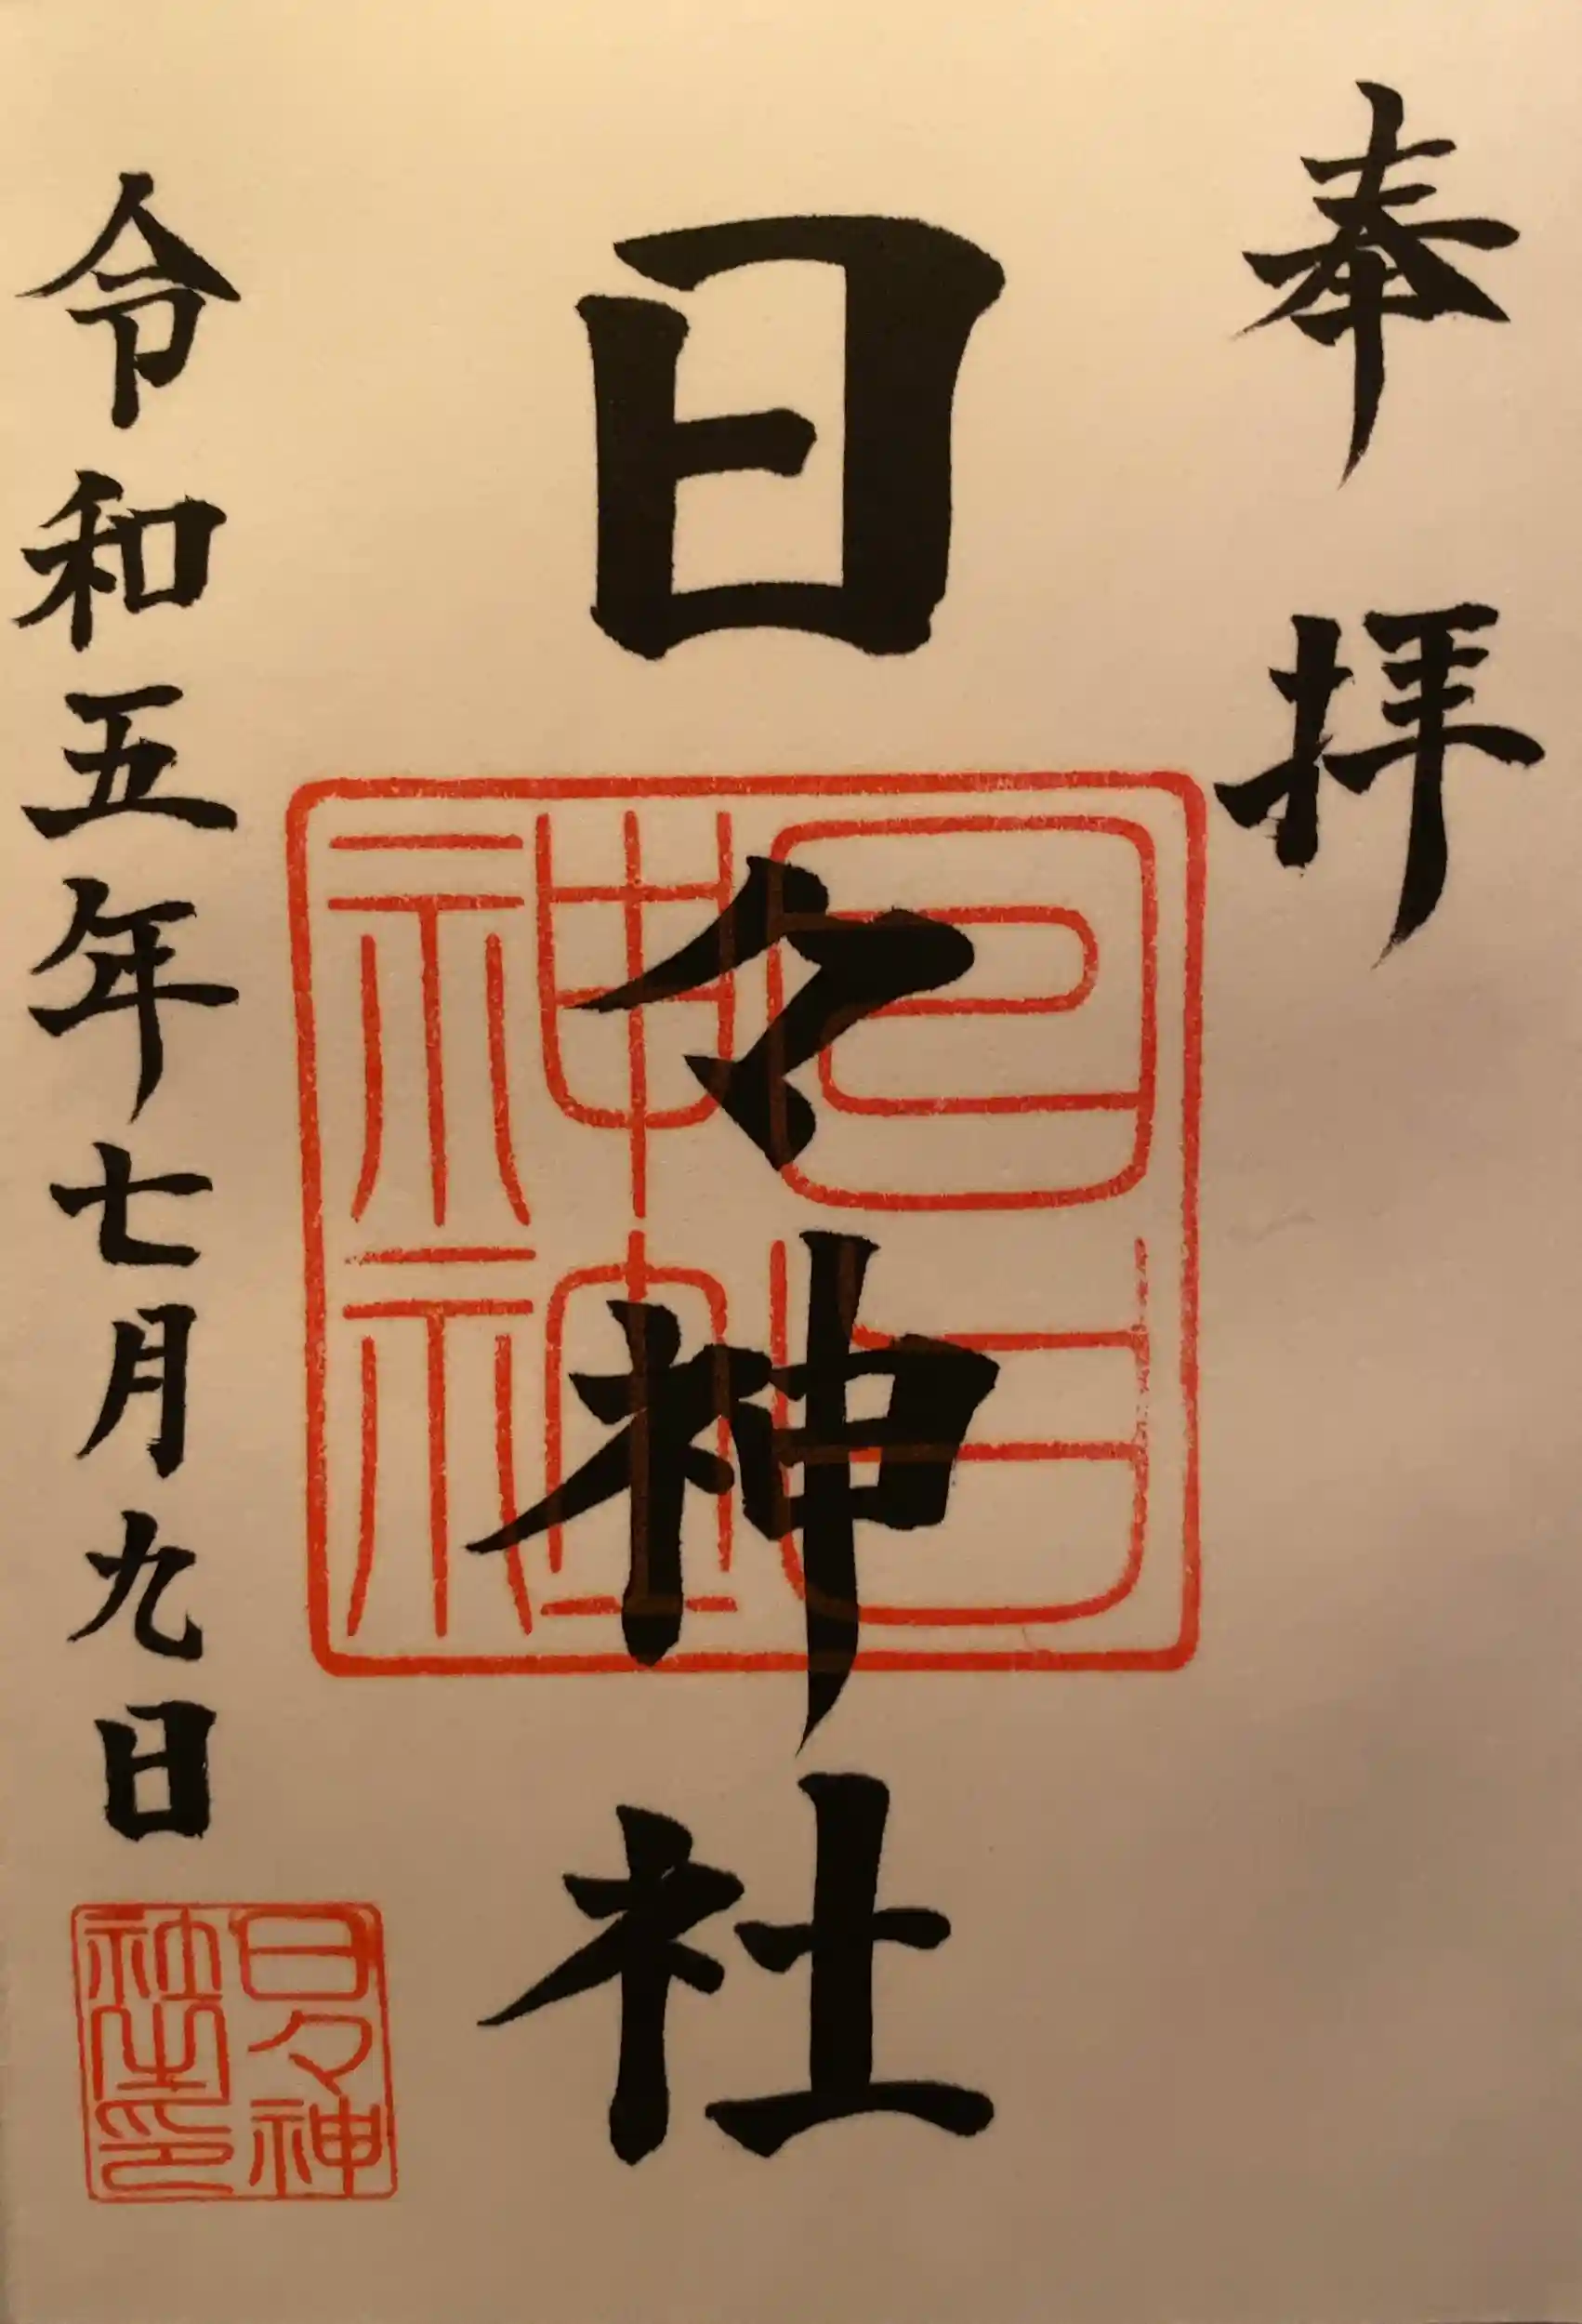 奉拝
日々神社
令和五年七月九日
日々神
社之印